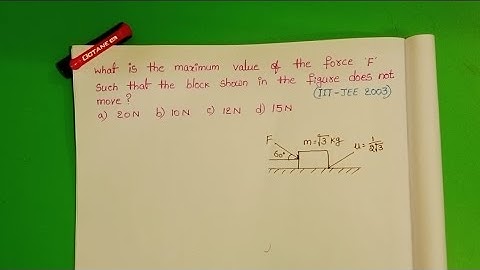 OCTANE
What is the maximum value of the force 'F'
such that the block shown in the figure does not
move? (IIT-JEE 2003)
a) 20N b) 10N c) 12N d) 15N
F m=√3 kg
60° μ=1/2√3